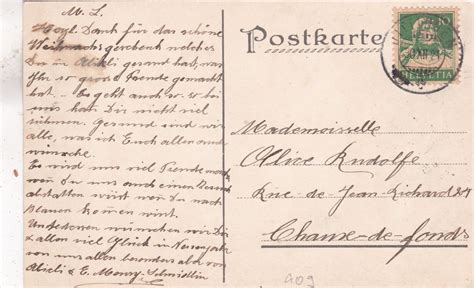 M. L.
Hezl. Dank für das schöne
Weihnachsgeschenk welches
Du in Alieli gesand hast, was
Ihr so grosse Freude gemacht
hat. - Es geht auch so. so bei
uns hat Dir nicht viel
rühmen. Gesund sind wir
alle, was ich Euch allen auch
wünsche.
Es wird uns viel Freude noch
wen Du uns auch einen Besuch
abstatten wirst wen Du nach
Blauen komen wirst.
Undesonen wünschen wir Dir
& allen viel Glück im Neuenjahr
von uns allen besonders aber von
Alieli & E. Memry-Schmidlin
Postkarte
HELVETIA
10
Mademoiselle
Alice Rudolfe
Rue de Jean Richard 27
Chaux-de-fonds
409